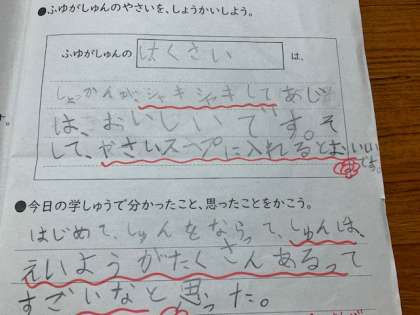 ●ふゆがしゅんのやさいを、しょうかいしよう。
ふゆがしゅんの はくさい は、
しょっかんが、シャキシャキしてあじ
は、おいしいです。そ
して、やさいスープに入れるとおいいです。
●今日の学しゅうで分かったこと、思ったことをかこう。
はじめて、しゅんをならって、しゅんは、
えいようがたくさんあるって
すごいなと思った。